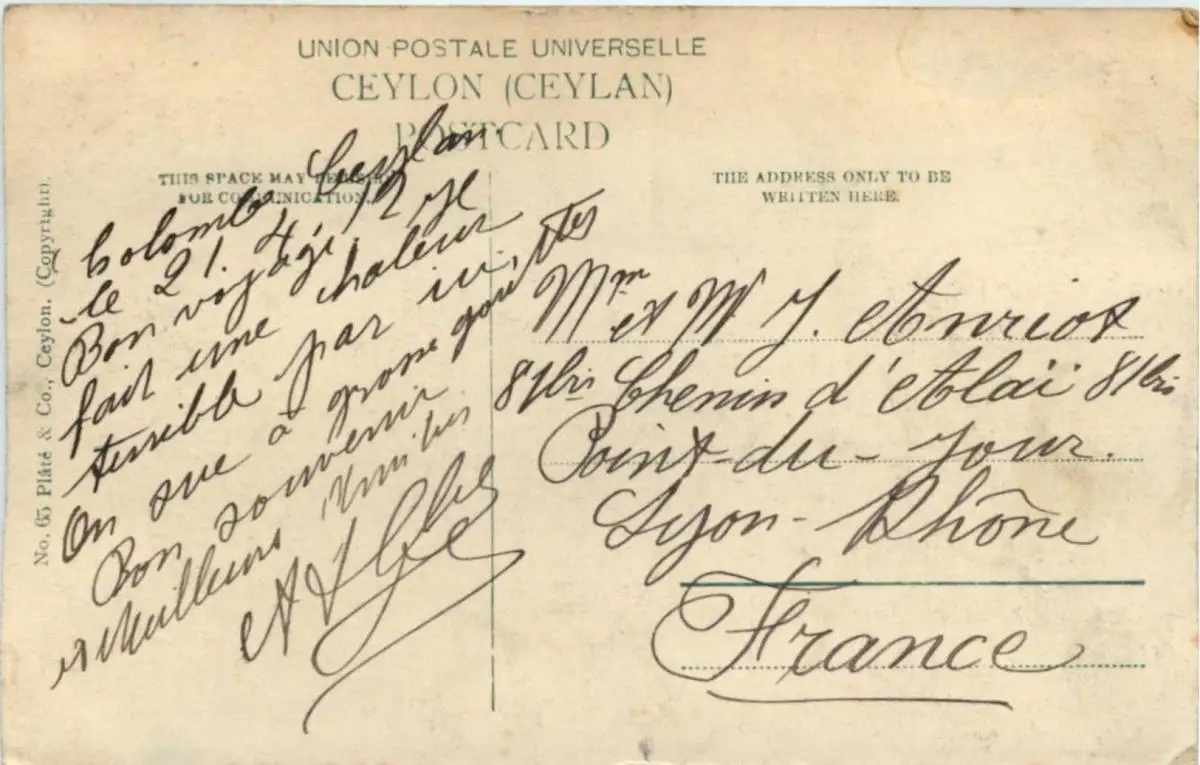 UNION POSTALE UNIVERSELLE
CEYLON (CEYLAN)
POSTCARD
THIS SPACE MAY BE USED
FOR COMMUNICATION.
THE ADDRESS ONLY TO BE
WRITTEN HERE.
No. 65 Plâté & Co., Ceylon. (Copyright).
Colombo Ceylan
le 21.4.12
Bon voyage, il
fait une chaleur
terrible par ici,
On sue à grosse gouttes
Bon souvenir
et Meilleurs
Mme
et Mr J. Anriot
81bis Chemin d'Alaï 81bis
Point-du-Jour.
Lyon-Rhône
France